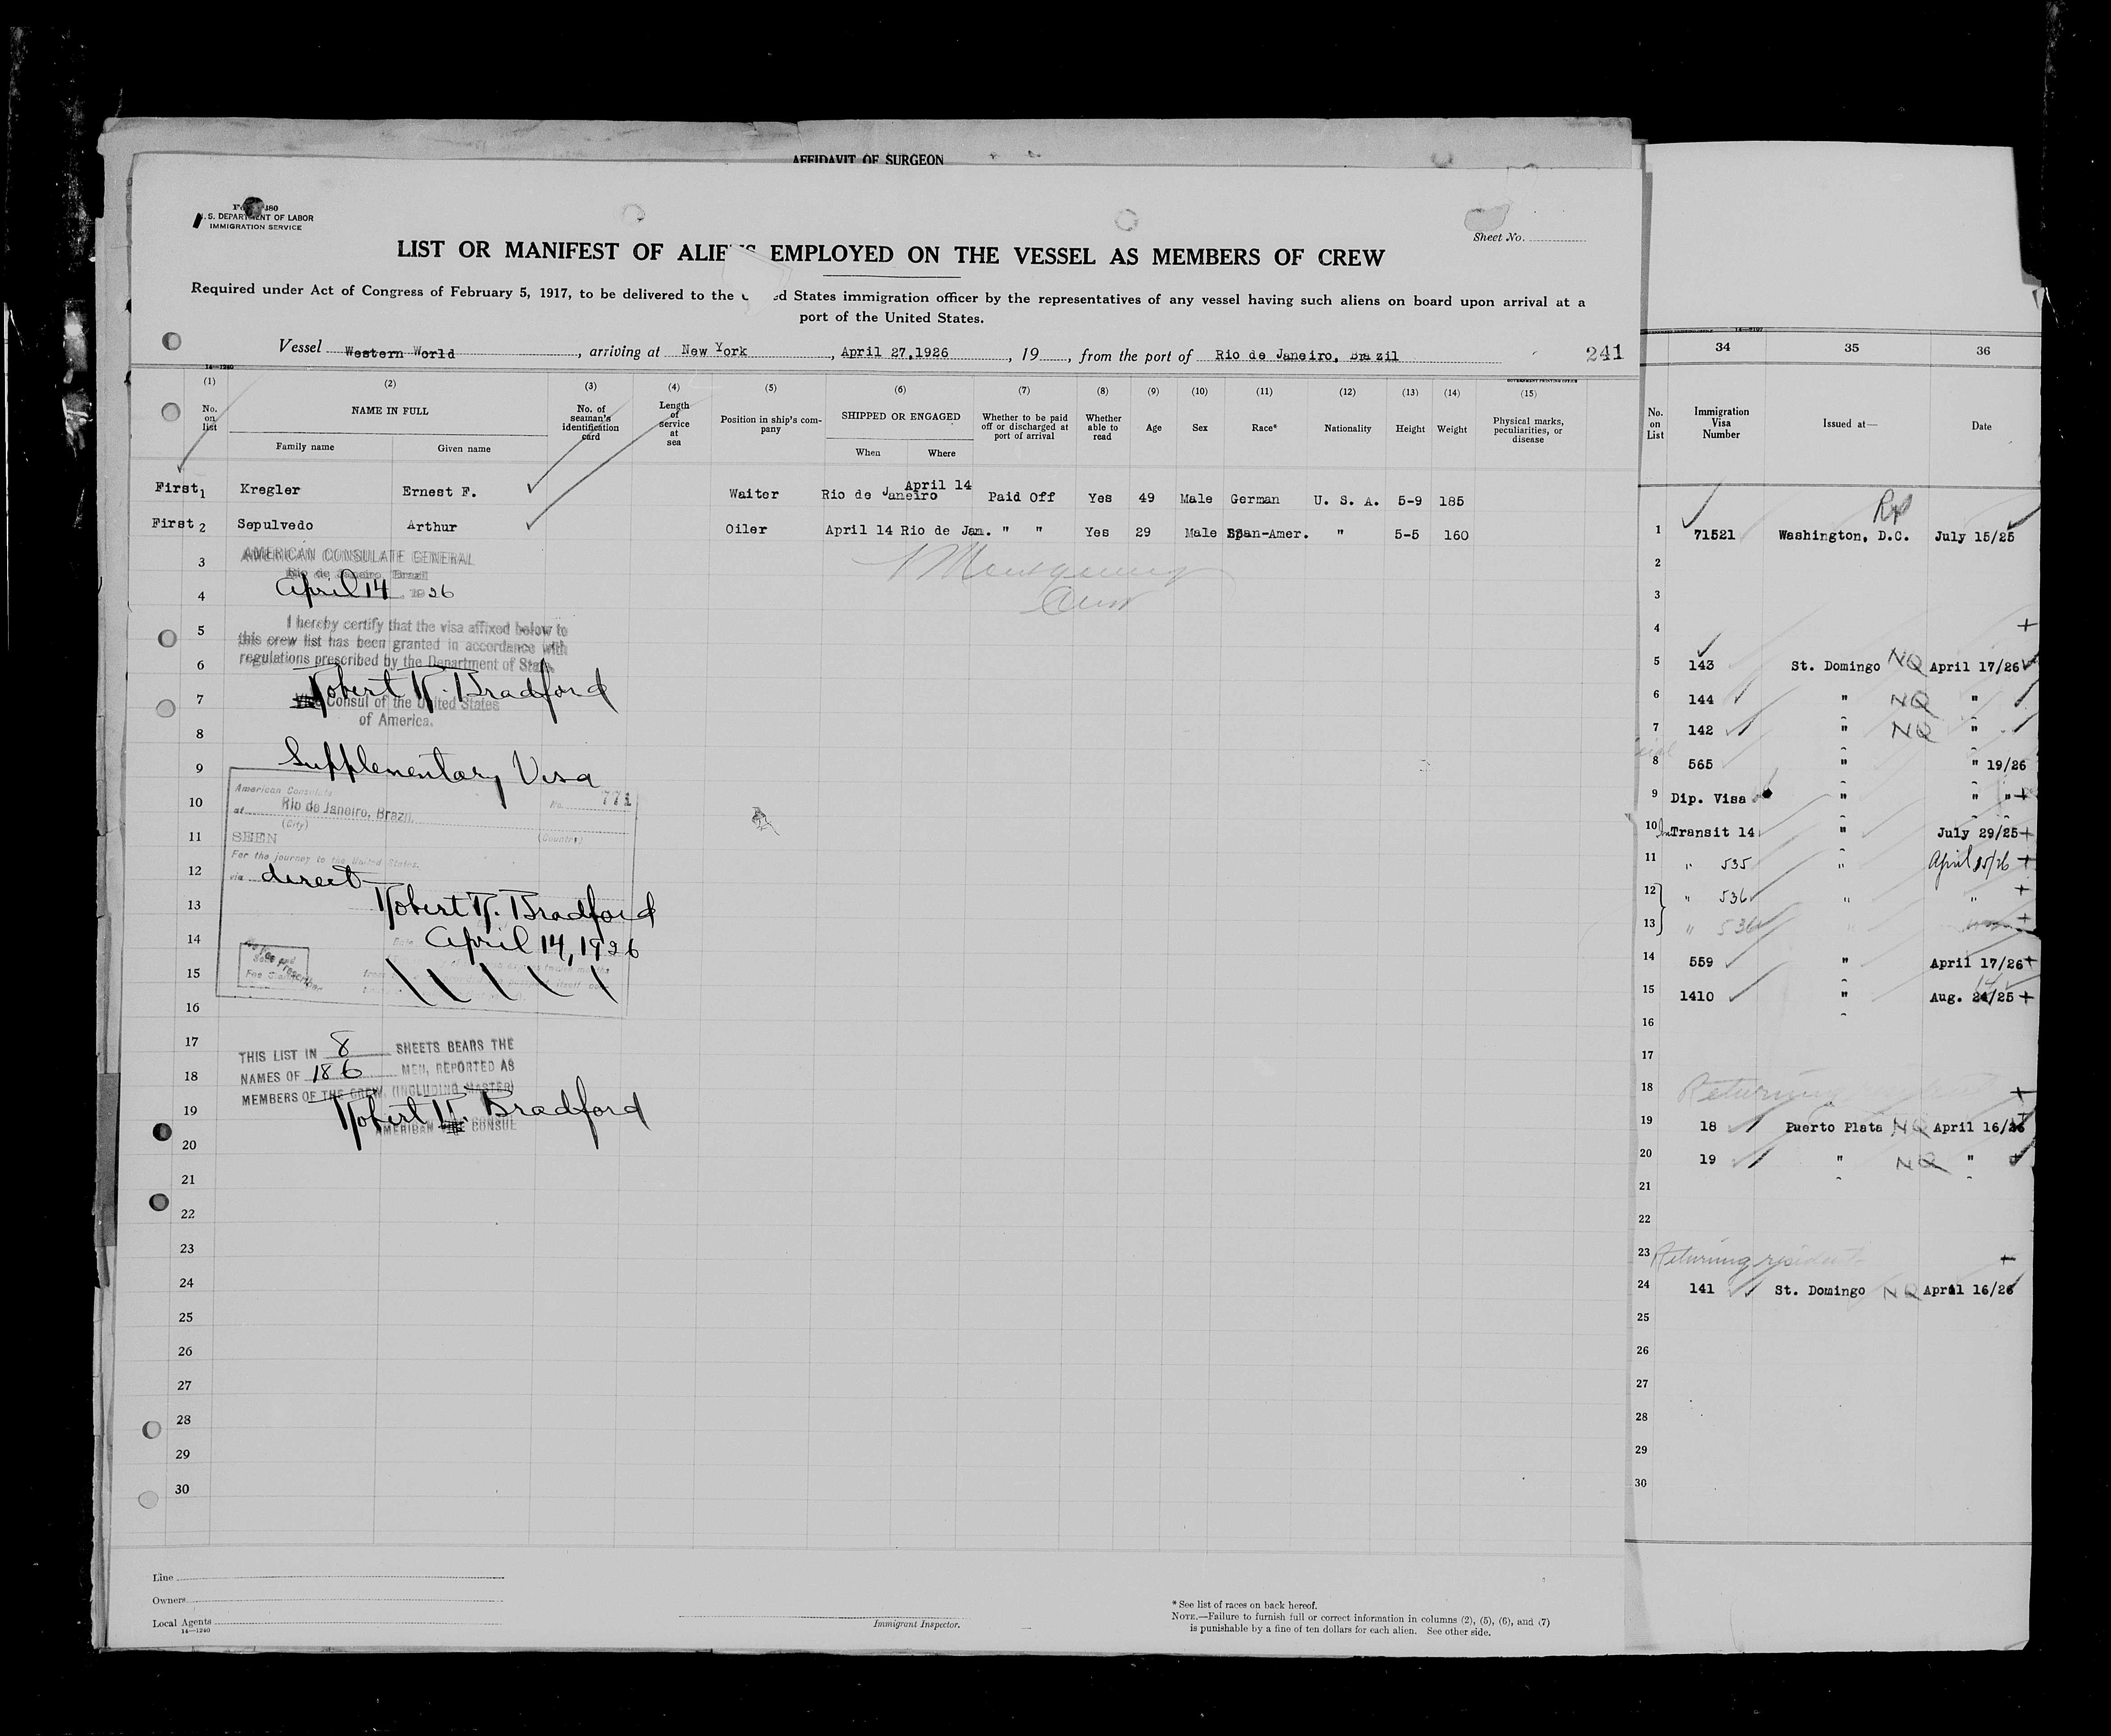 AFFIDAVIT OF SURGEON
U.S. DEPARTMENT OF LABOR
IMMIGRATION SERVICE
Sheet No.
LIST OR MANIFEST OF ALIENS EMPLOYED ON THE VESSEL AS MEMBERS OF CREW
Required under Act of Congress of February 5, 1917, to be delivered to the United States immigration officer by the representatives of any vessel having such aliens on board upon arrival at a
port of the United States.
Vessel Western World, arriving at New York, April 27,1926, 19, from the port of Rio de Janeiro, Brazil 241
14—1240
(1) (2) (3) (4) (5) (6) (7) (8) (9) (10) (11) (12) (13) (14) (15)
No. on list NAME IN FULL Family name Given name No. of seaman's identification card Length of service at sea Position in ship's company SHIPPED OR ENGAGED When Where Whether to be paid off or discharged at port of arrival Whether able to read Age Sex Race* Nationality Height Weight Physical marks, peculiarities, or disease
First 1 Kregler Ernest F. Waiter April 14 Rio de Janeiro Paid Off Yes 49 Male German U. S. A. 5-9 185
First 2 Sepulvedo Arthur Oiler April 14 Rio de Jan. " " Yes 29 Male Span-Amer. " 5-5 160
3
4
5
6
7
8
9
10
11
12
13
14
15
16
17
18
19
20
21
22
23
24
25
26
27
28
29
30
AMERICAN CONSULATE GENERAL
Rio de Janeiro Brazil
April 14 1926
I hereby certify that the visa affixed below to
this crew list has been granted in accordance with
regulations prescribed by the Department of State.
Robert R. Bradford
Vice Consul of the United States
of America.
Supplementary Visa
American Consulate
at Rio de Janeiro, Brazil. No.
(City) (Country)
SEEN
For the journey to the United States.
via direct
Robert R. Bradford
Date April 14, 1926
THIS LIST IN 8 SHEETS BEARS THE
NAMES OF 186 MEN, REPORTED AS
MEMBERS OF THE CREW, (INCLUDING MASTER)
Robert R. Bradford
AMERICAN VICE CONSUL
Line
Owners
Local Agents
14—1240
Immigrant Inspector.
* See list of races on back hereof.
NOTE.—Failure to furnish full or correct information in columns (2), (5), (6), and (7)
is punishable by a fine of ten dollars for each alien. See other side.
34 35 36
No. on List Immigration Visa Number Issued at— Date
1 71521 Washington, D.C. July 15/25
2
3
4
5 143 St. Domingo NQ April 17/26
6 144 " NQ "
7 142 " NQ "
8 565 " " 19/26
9 Dip. Visa " " "
10 Transit 14 " July 29/25
11 " 535 " April 15/26
12 " 536 " "
13 " 536 "
14 559 " April 17/26
15 1410 " Aug. 24/25
16
17
18 Returning
19 18 Puerto Plata NQ April 16/26
20 19 " NQ "
21
22
23 Returning resident
24 141 St. Domingo NQ April 16/26
25
26
27
28
29
30